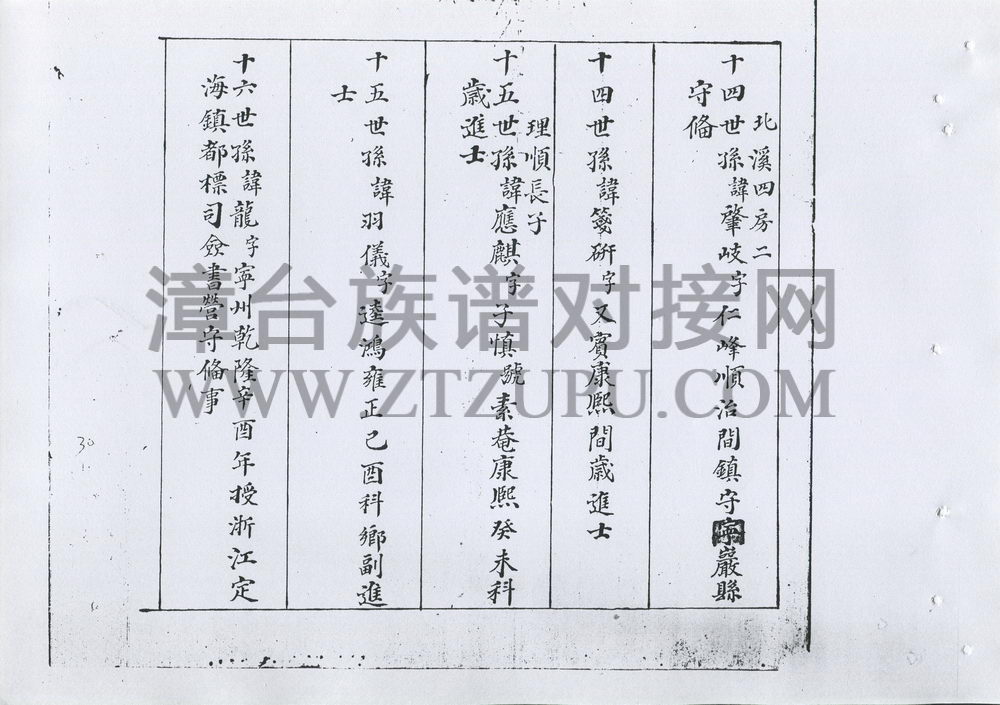 北溪四房二
十四世孫諱肇岐字仁峰順治間鎮守寧巖縣
守俻
十四世孫諱箋研字又賓康熙間歲進士
理順長子
十五世孫諱應麒字子慎號素菴康熙癸未科
歲進士
十五世孫諱羽儀字逵鴻雍正己酉科鄉副進
士
十六世孫諱龍字寧州乾隆辛酉年授浙江定
海鎮都標司僉書營守俻事
漳台族谱对接网
WWW.ZTZUPU.COM
30